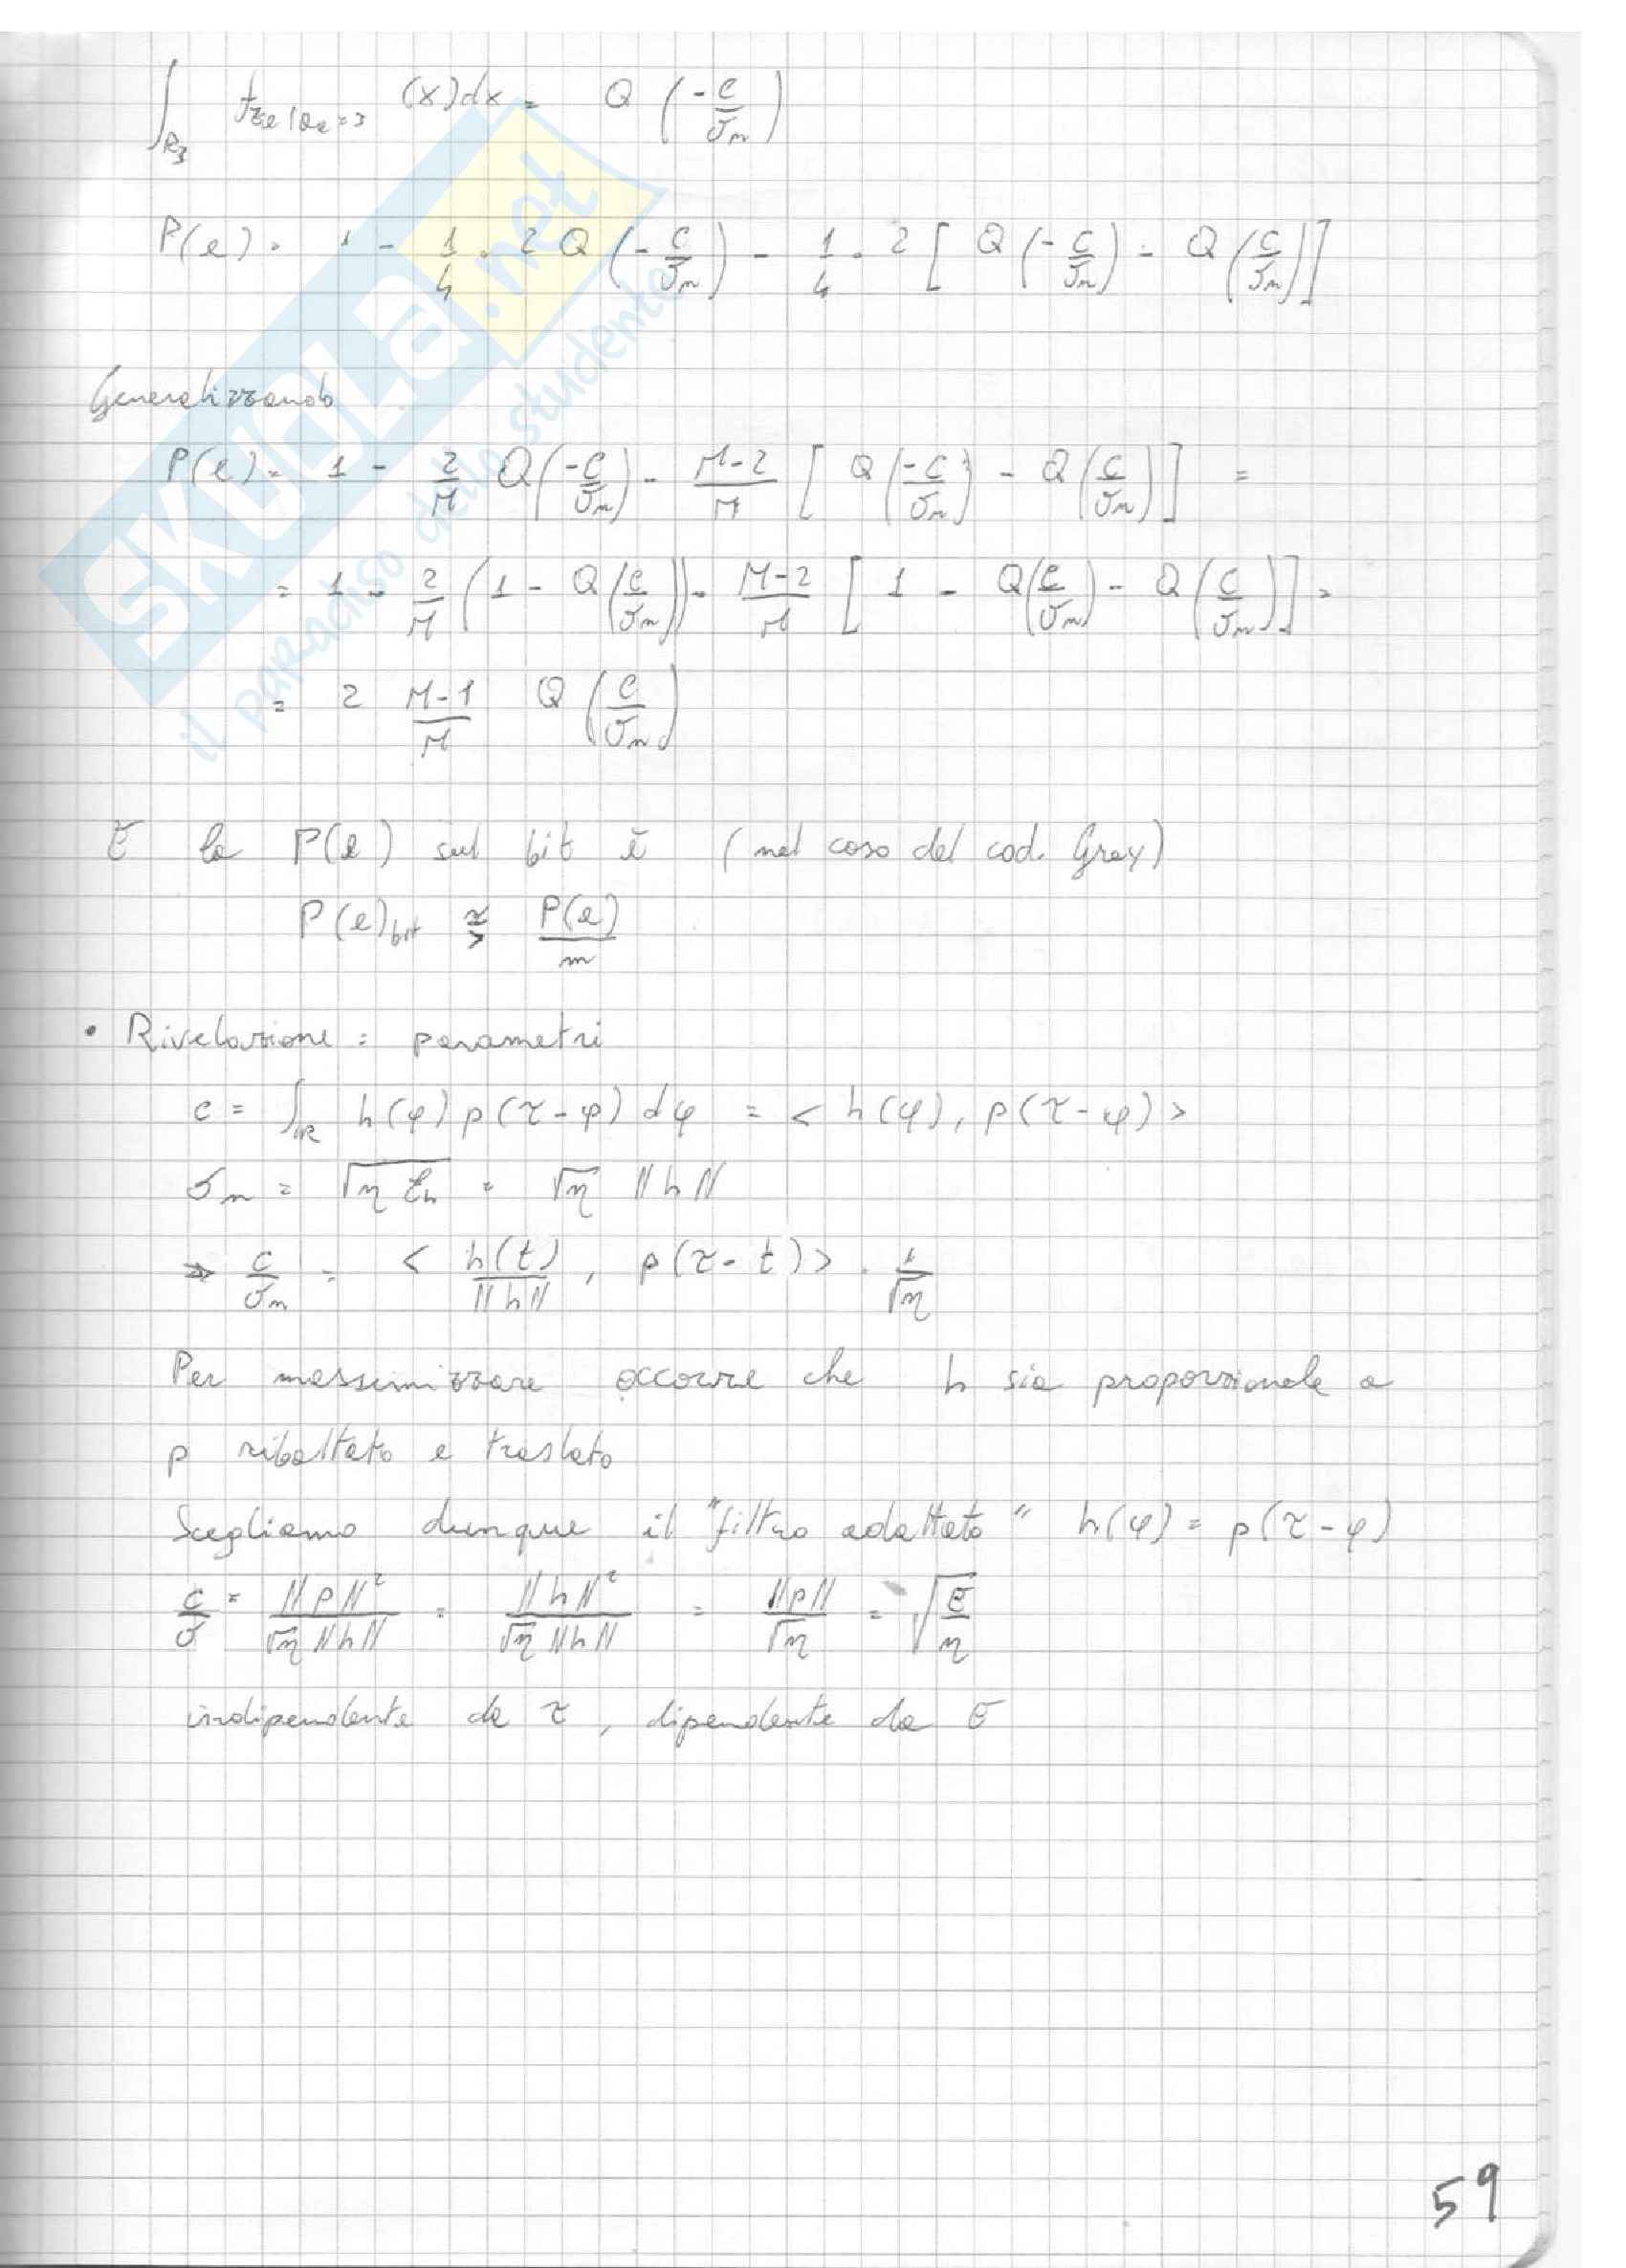 ∫_{R_3} f_{z_e|a_e=3} (x)dx = Q (-c/σ_n)
P(e) = 1 - 1/4 · 2 Q (-c/σ_n) - 1/4 · 2 [ Q (-c/σ_n) - Q (c/σ_n) ]
Generalizzando
P(e) = 1 - 2/M Q(-c/σ_n) - M-2/M [ Q(-c/σ_n) - Q(c/σ_n) ] =
= 1 - 2/M (1 - Q(c/σ_n)) - M-2/M [ 1 - Q(c/σ_n) - Q(c/σ_n) ] =
= 2 M-1/M Q (c/σ_n)
E la P(e) sul bit è (nel caso del cod. Gray)
P(e)_bit ≳ P(e)/m
• Rivelazione: parametri
c = ∫_ℝ h(φ) p(τ-φ) dφ = < h(φ), p(τ-φ) >
σ_n = √(η ℰ_h) = √η ||h||
⇒ c/σ_n = < h(t)/||h||, p(τ-t) > · 1/√η
Per massimizzare occorre che h sia proporzionale a
p ribaltato e traslato
Scegliamo dunque il "filtro adattato" h(φ) = p(τ-φ)
c/σ = ||p||²/(√η ||h||) = ||h||²/(√η ||h||) = ||p||/√η = √(E/η)
indipendente da τ, dipendente da E
59
SKUOLA.net
il paradiso dello studente